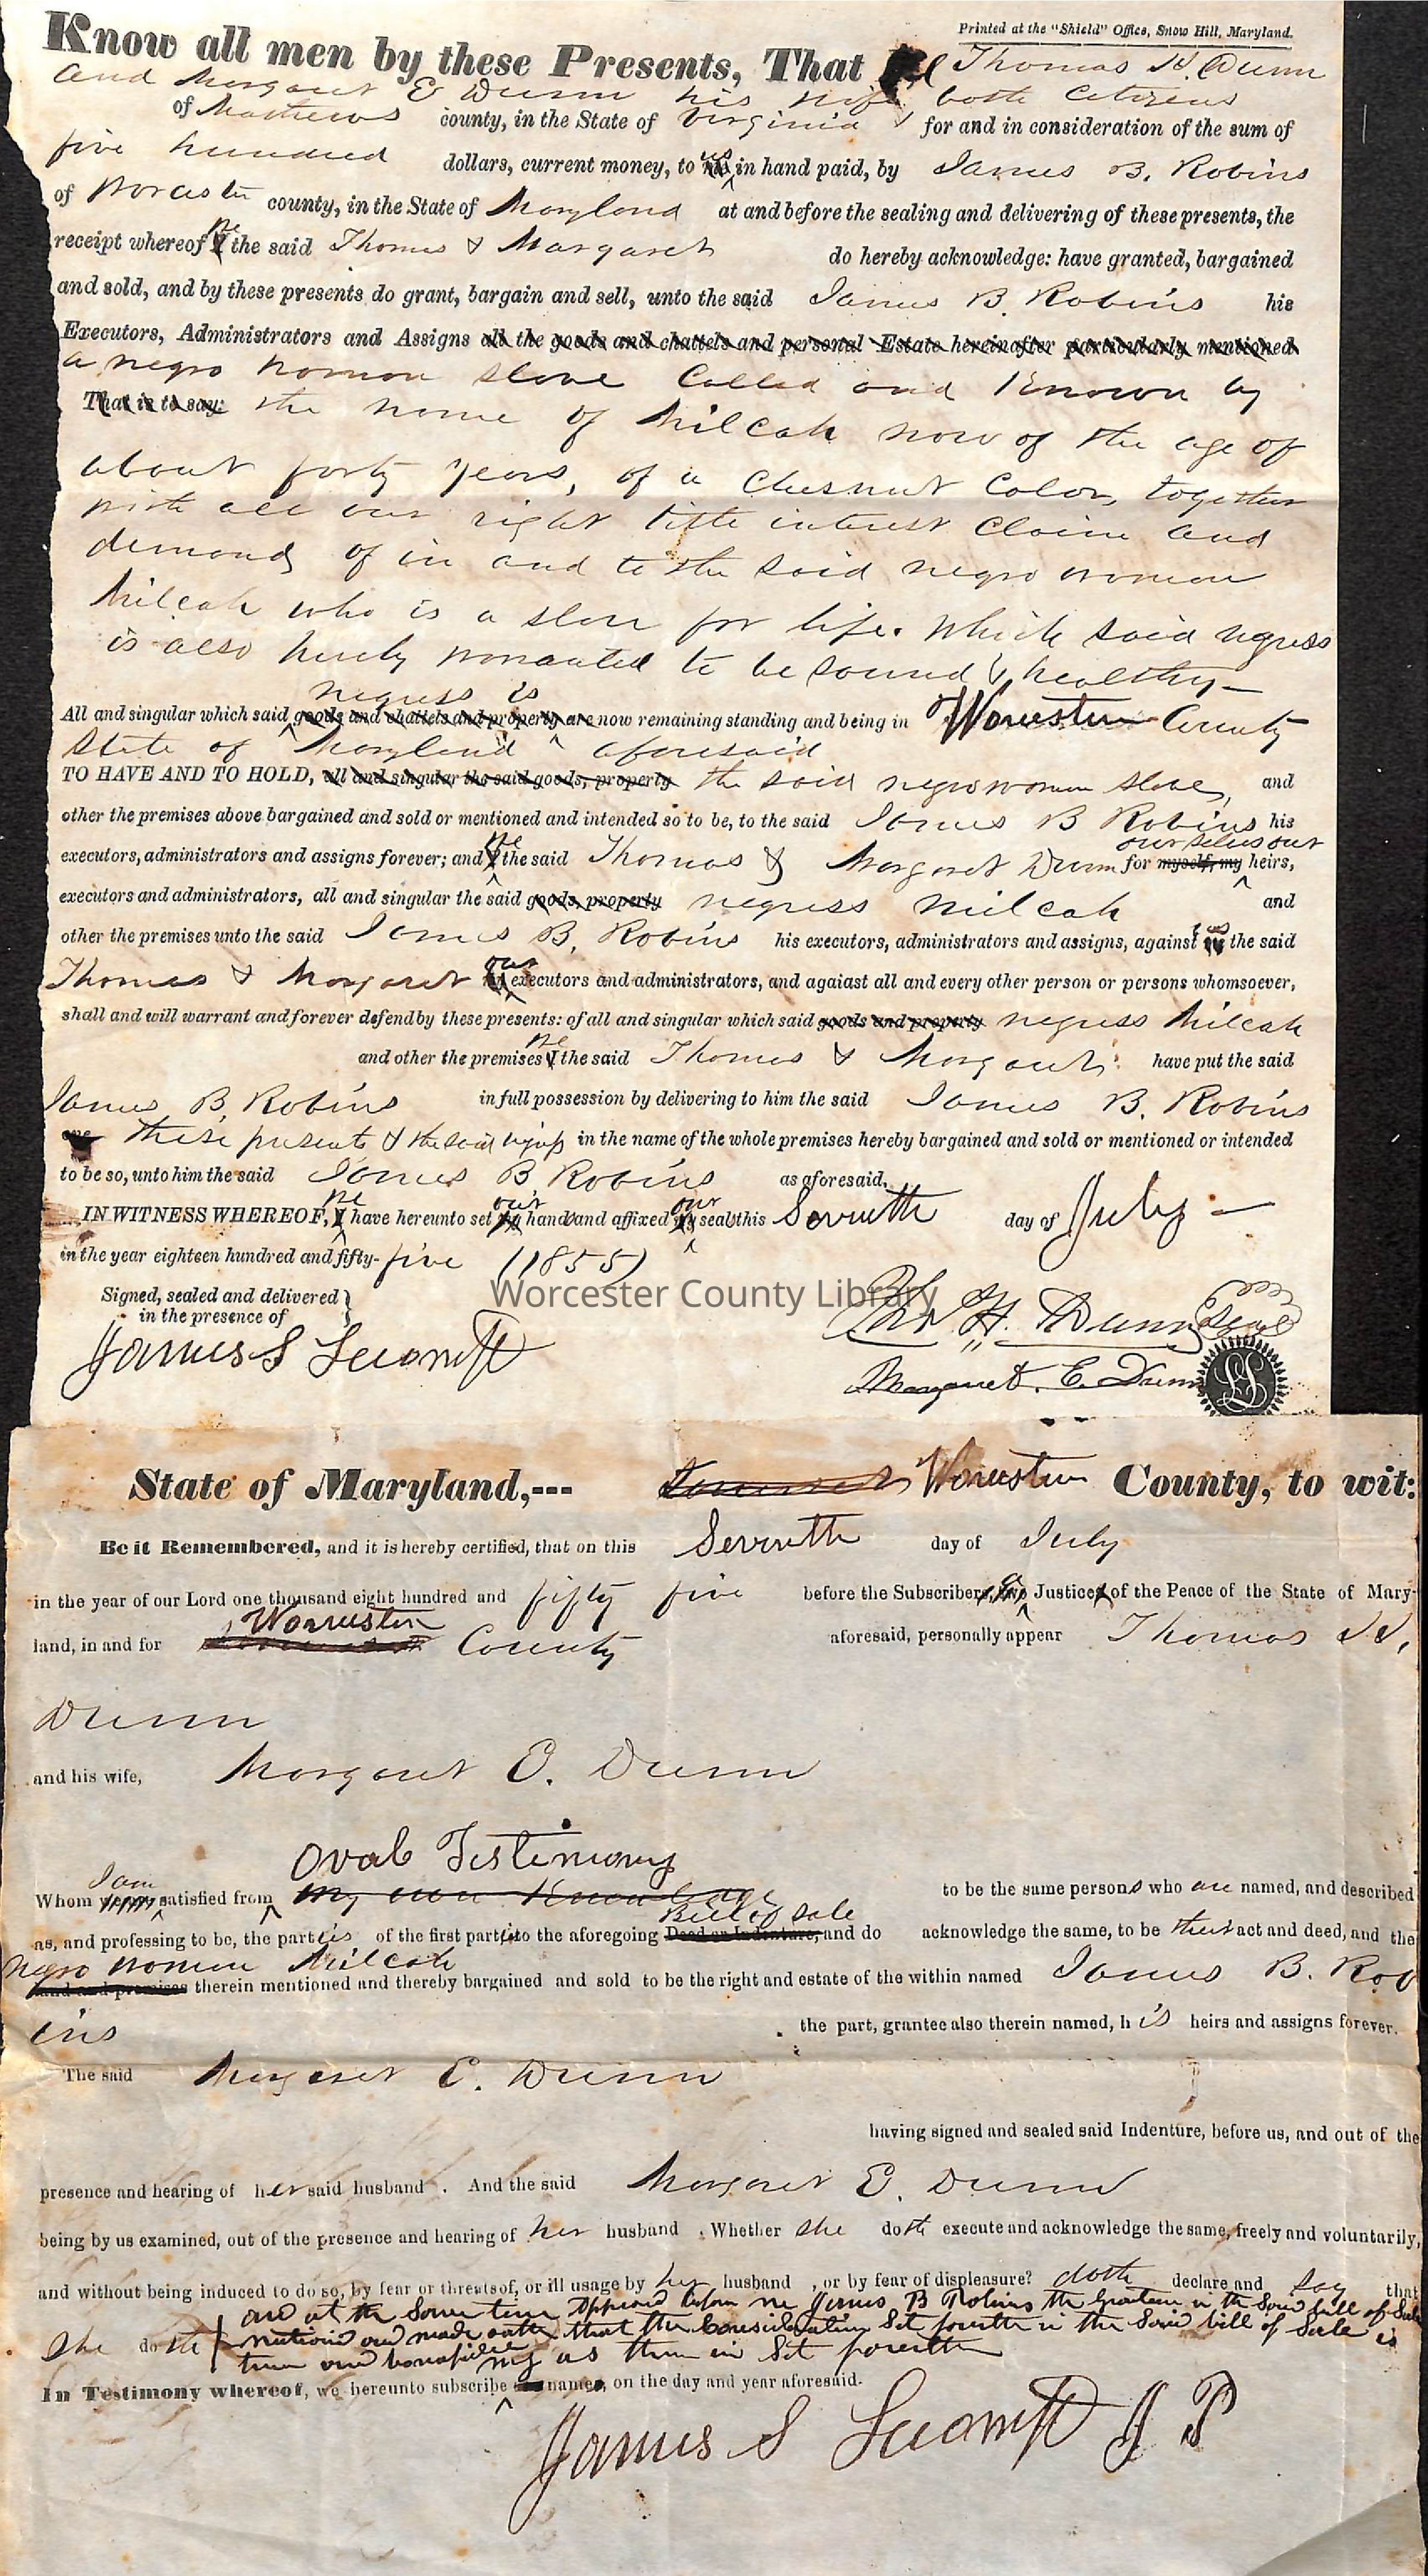 Printed at the "Shield" Office, Snow Hill, Maryland.
Know all men by these Presents, That Thomas H. Dunn
and Margaret E Dunn his wife, both Citizens
of Mathews county, in the State of Virginia for and in consideration of the sum of
five hundred dollars, current money, to us in hand paid, by James B. Robins
of Worcester county, in the State of Maryland at and before the sealing and delivering of these presents, the
receipt whereof We the said Thomas & Margaret do hereby acknowledge: have granted, bargained
and sold, and by these presents do grant, bargain and sell, unto the said James B. Robins his
Executors, Administrators and Assigns all the goods and chattels and personal Estate hereinafter particularly mentioned
a negro woman slave Called and Known by
That is to say: the name of Milcah now of the age of
about forty years, of a Chesnut Color, together
with all our right title interest Claim and
demand, of in and to the said negro woman
Milcah who is a slave for life. Which said negress
is also hereby warranted to be sound & healthy—
negress is
All and singular which said goods and chattels and property are now remaining standing and being in Worcester County
State of Maryland aforesaid
TO HAVE AND TO HOLD, all and singular the said goods, property the said negro woman slave, and
other the premises above bargained and sold or mentioned and intended so to be, to the said James B Robins his
our selves our
executors, administrators and assigns forever; and We the said Thomas & Margaret Dunn for myself, my heirs,
executors and administrators, all and singular the said goods, property negress Milcah and
other the premises unto the said James B. Robins his executors, administrators and assigns, against us the said
Thomas & Margaret our executors and administrators, and agaiast all and every other person or persons whomsoever,
shall and will warrant and forever defend by these presents: of all and singular which said goods and property negress Milcah
and other the premises We the said Thomas & Margaret have put the said
James B. Robins in full possession by delivering to him the said James B. Robins
one these presents & the said negress in the name of the whole premises hereby bargained and sold or mentioned or intended
to be so, unto him the said James B Robins as aforesaid.
IN WITNESS WHEREOF, We have hereunto set our hands and affixed our seals this Seventh day of July
in the year eighteen hundred and fifty-five (1855)
Worcester County Library
Signed, sealed and delivered
in the presence of
Thos H. Dunn Seal
James S
Margaret. E. Dunn LS
State of Maryland,--- Somerset Worcester County, to wit:
Be it Remembered, and it is hereby certified, that on this Seventh day of July
in the year of our Lord one thousand eight hundred and fifty five before the Subscriber, a two Justices of the Peace of the State of Mary-
land, in and for Worcester Somerset County aforesaid, personally appear Thomas H.
Dunn
and his wife, Margaret E. Dunn
Oral Testimony
I am
Whom we are satisfied from my own Knowledge to be the same persons who are named, and described
Bill of Sale
as, and professing to be, the parties of the first part to the aforegoing Deed or Indenture, and do acknowledge the same, to be their act and deed, and the
negro woman Milcah
land and premises therein mentioned and thereby bargained and sold to be the right and estate of the within named James B. Rob
ins the part, grantee also therein named, his heirs and assigns forever.
The said Margaret E. Dunn
having signed and sealed said Indenture, before us, and out of the
presence and hearing of her said husband. And the said Margaret E. Dunn
being by us examined, out of the presence and hearing of her husband. Whether she doth execute and acknowledge the same, freely and voluntarily,
and without being induced to do so, by fear or threats of, or ill usage by her husband, or by fear of displeasure? doth declare and say that
and at the Same time appeared before me James B Robins the Grantee in the Said bill of Sale
She doth mentioned and made oath that the Consideration Set fourth in the Said bill of Sale is
true and bonafide as there in Set fourth
my
In Testimony whereof, we hereunto subscribe our names, on the day and year aforesaid.
James S J P